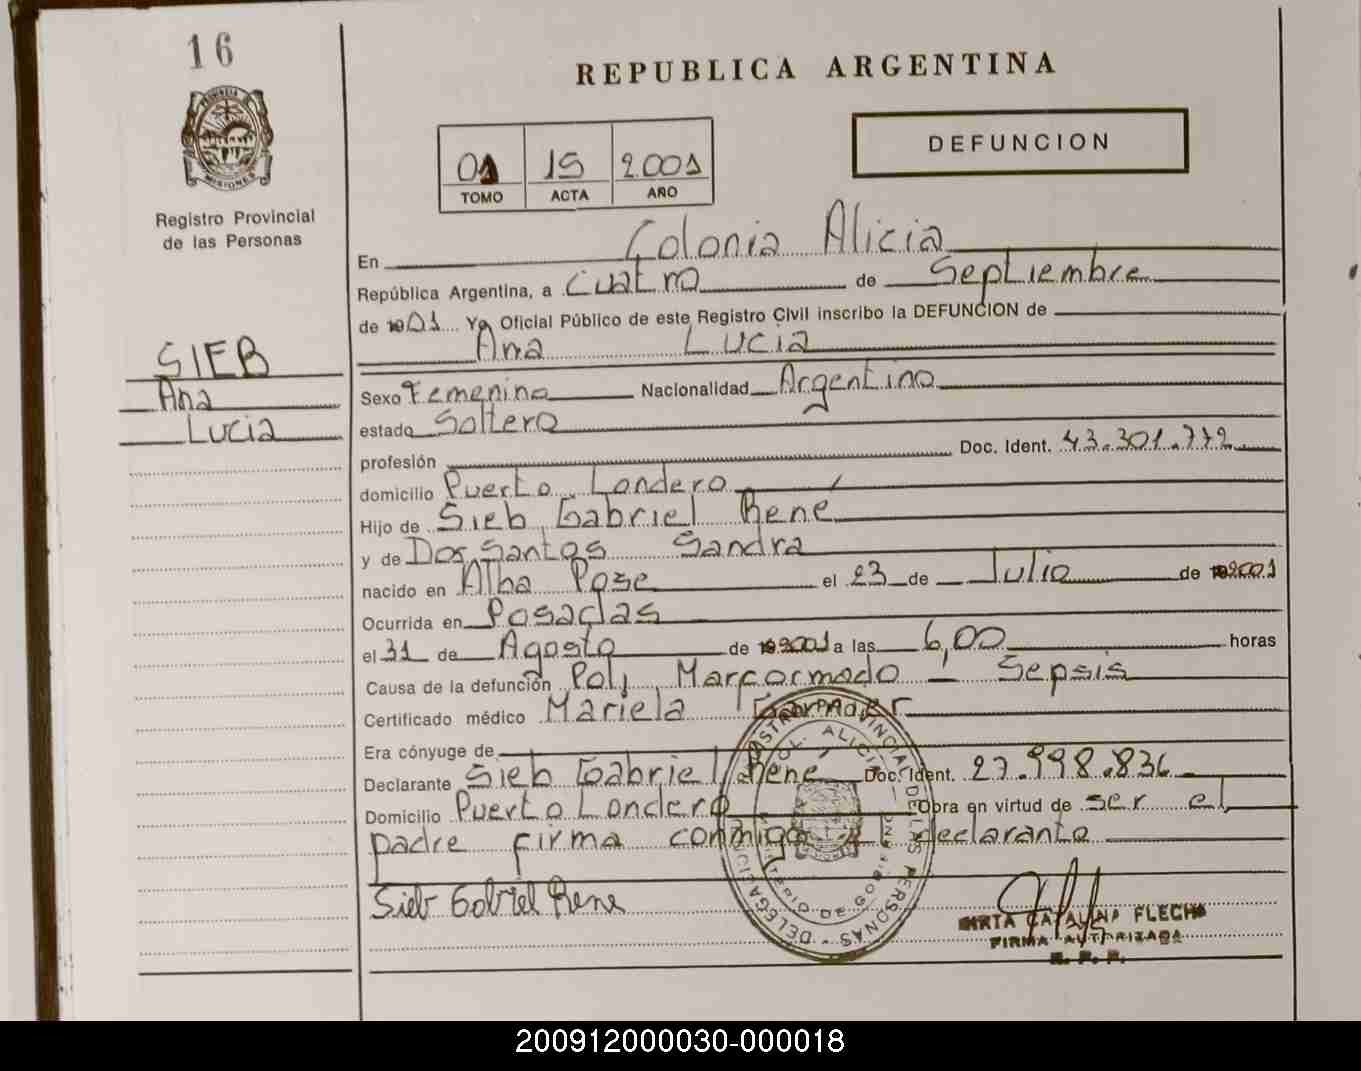 16
REPUBLICA ARGENTINA
PROVINCIA DE
MISIONES
Registro Provincial
de las Personas
DEFUNCION
01 15 2001
TOMO ACTA AÑO
SIEB
Ana
Lucia
En Colonia Alicia
República Argentina, a Cuatro de Septiembre
de 1901 Yo Oficial Público de este Registro Civil inscribo la DEFUNCION de
Ana Lucia
Sexo Femenino Nacionalidad Argentino
estado Soltero
profesión Doc. Ident. 43.301.772
domicilio Puerto Londero
Hijo de Sieb Gabriel René
y de Dos Santos Sandra
nacido en Alba Pose el 23 de Julio de 2001
Ocurrida en Posadas
el 31 de Agosto de 2001 a las 6,00 horas
Causa de la defunción Poli Marformado - Sepsis
Certificado médico Mariela
Era cónyuge de
Declarante Sieb Gabriel René Doc. Ident. 27.998.836
Domicilio Puerto Londero Obra en virtud de ser el
padre firma conmigo el declarante
Sieb Gabriel Rene
MIRTA CATALINA FLECHA
FIRMA AUTORIZADA
R. P. P.
200912000030-000018